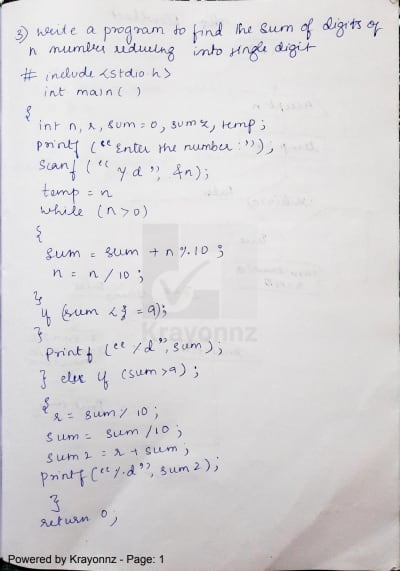 3) write a program to find the sum of digits of
n number reducing into single digit
# include <stdio.h>
int main( )
{
int n, r, sum = 0, sum2, temp;
printf (“Enter the number :”);
scanf (“%d”, &n);
temp = n
while (n>0)
{
sum = sum + n % 10 ;
n = n / 10 ;
}
if (sum <{ = 9);
}
Krayonnz
printf (“%d”, sum);
} else if (sum>9) ;
{
r = sum % 10 ;
sum = sum /10 ;
sum 2 = r + sum ;
printf (“%.d”, sum 2) ;
}
return 0;
Powered by Krayonnz - Page: 1